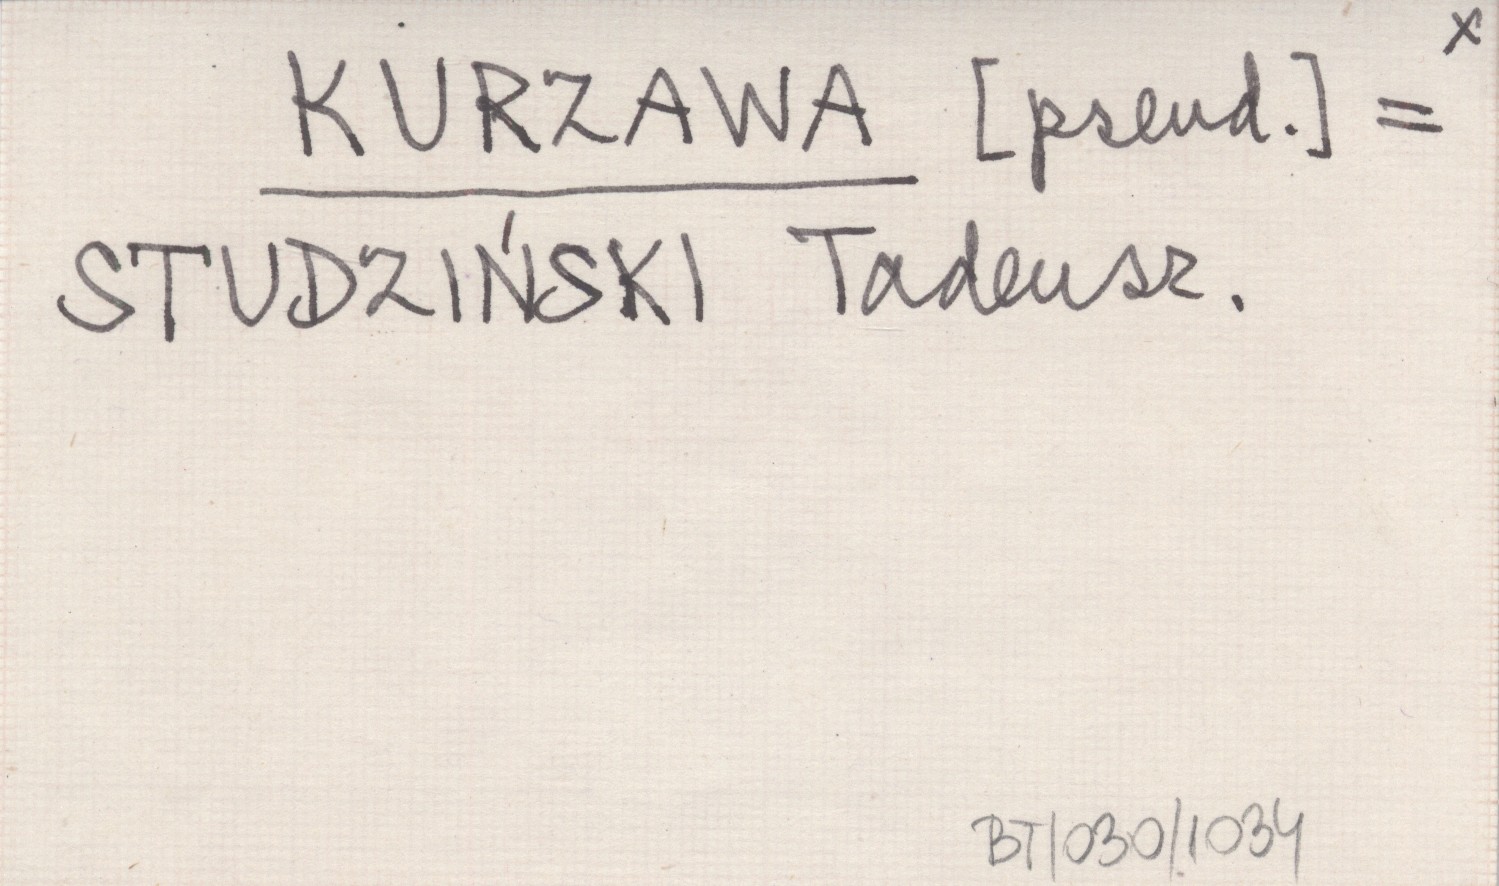 x
KURZAWA [pseud.] =
STUDZIŃSKI Tadeusz.
BT/030/1034